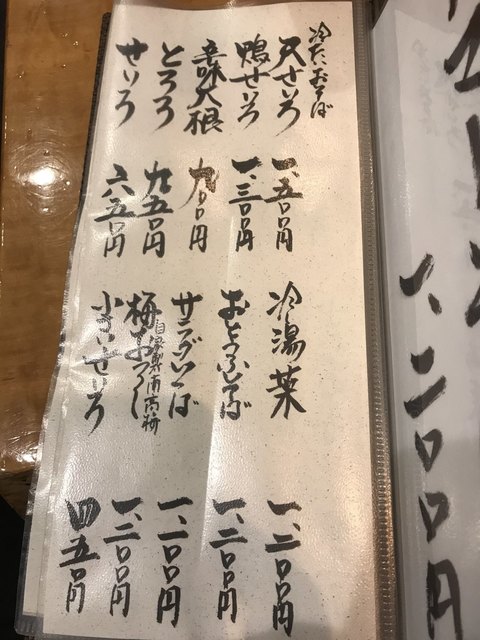 一、二〇〇円
冷たいおそば
天せいろ 一、五〇〇円
鴨せいろ 一、三〇〇円
辛味大根 九〇〇円
とろろ 九五〇円
せいろ 六五〇円
冷湯葉 一、二〇〇円
おとうふそば 一、二〇〇円
サラダそば 一、二〇〇円
自家製南高梅
梅おろし 一、二〇〇円
小さいせいろ 四五〇円